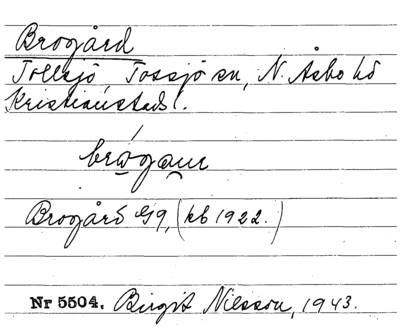 Brogård
Tossjö sn, N. Åsbo hd
Kristianstads l.
Brogård Gg, (kb 1922.)
Nr 5504. Birgit Nilsson, 1943.